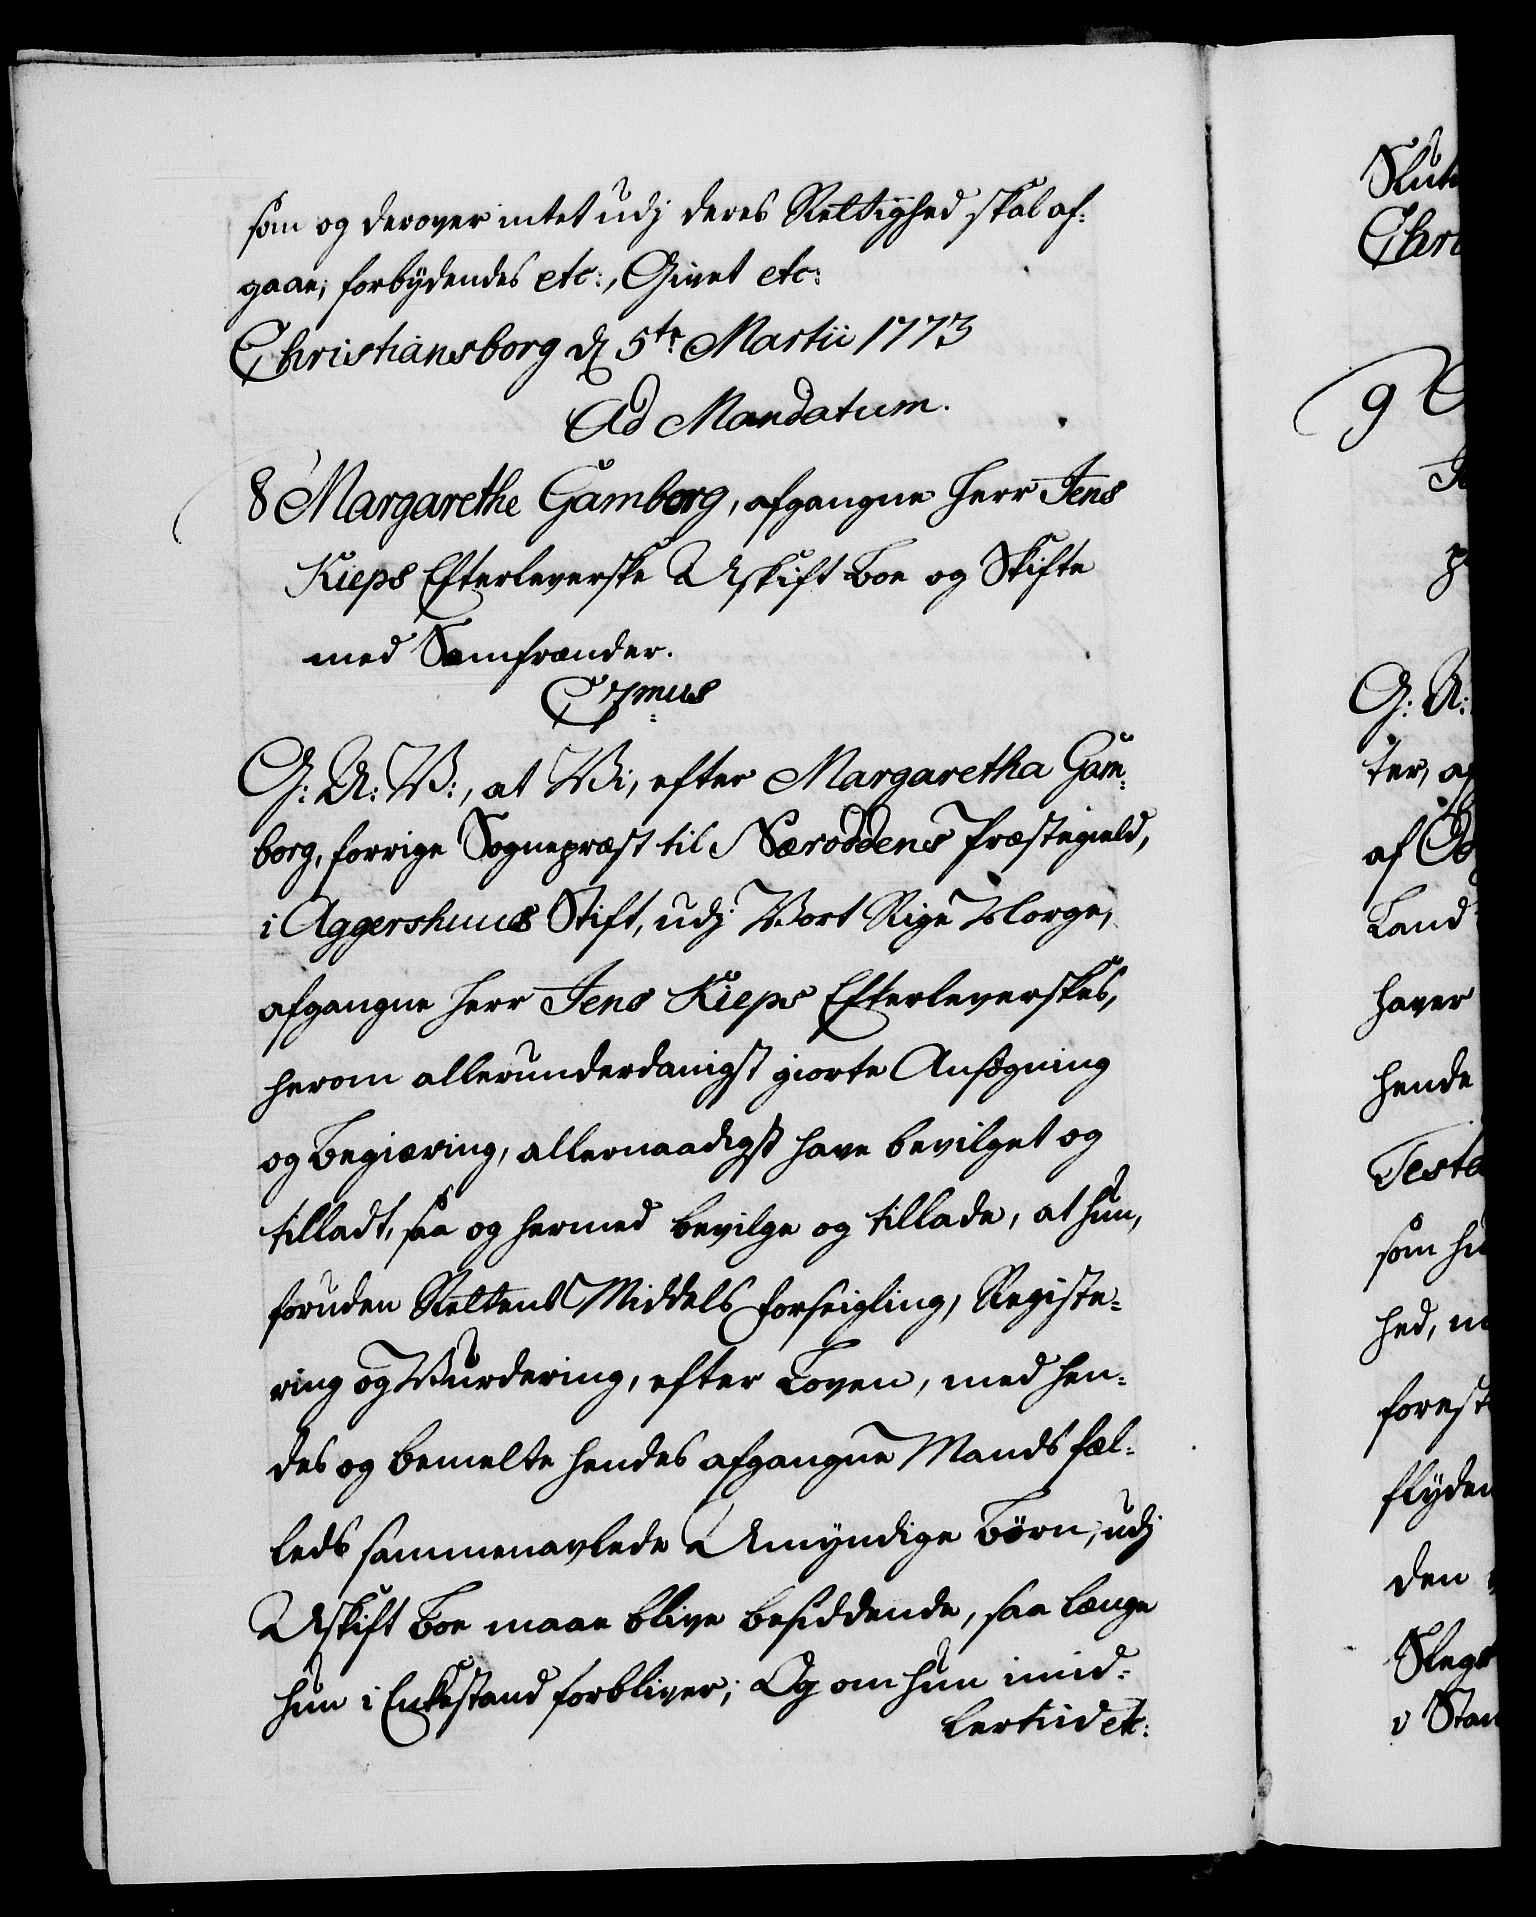 som og derover intet udj deres Rettighed skal af-
gaae; forbydendes etc:, Givet etc:
Christiansborg d 5te Martii 1773
Ad Mandatum.
8 Margarethe Gamborg, afgangne Herr Jens
Kieps Efterleverske Uskift Boe og Skifte
med Samfrænder.
C 7mus
G: A: V:, at Vi, efter Margaretha Gam-
borg, forrige Sognepræst til Næroddens Præstegield,
i Aggershuus Stift, udj Vort Rige Norge,
afgangne Herr Jens Kieps Efterleverskes,
herom allerunderdanigst giorte Ansøgning
og Begiæring, allernaadigst have bevilget og
tilladt, saa og hermed bevilge og tillade, at hun,
foruden Rettens Middels Forseigling, Registe-
ring og Vurdering, efter Loven, med hen-
des og bemelte hendes afgangne Mands fæl-
leds sammenavlede Umyndige Børn, udj
Uskift Boe maae blive besiddende, saa længe
hun i Enkestand forbliver; Og om hun imid-
lertiid etc:
Slut
Chri
9
G: A:
ter, af
af
Land
haver
hende
Teste
som hu
hed, m
forest
flyden
den
Slegt
v Stan